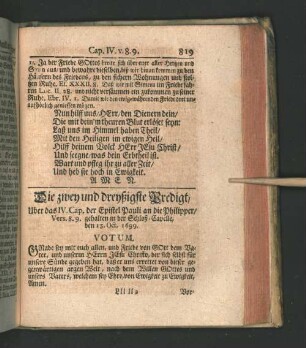 Cap. IV. v. 8. 9. 819
Ja der Friede GOttes breite sich über euer aller Hertzen und
Sinnen aus, und bewahre dieselben, biß wir hinaus kommen zu den
Häusern des Friedens, zu den sichern Wohnungen und zur stoltzen
Ruhe, Es. XXXII. 8. Daß wir mit Simeon im Friede fahren
Luc. II. 28. und nicht versäumen ein zukommen zu seiner
Ruhe, Ebr. IV. 1. Damit wir den ewigwährenden Friede
nachdrücklich geniessen mögen.
Nun hilff uns, HErr, den Dienern dein,
Die mit dein'm theuren Blut erlöset seyn:
Laß uns im Himmel haben Theil,
Mit den Heiligen im ewigen Heil,
Hilff deinem Volck HErr JEsu Christ,
Und seegne, was dein Erbtheil ist.
Wart und pfleg ihr zu aller Zeit,
Und heb sie hoch in Ewigkeit.
A M E N.
Die zwey und dreyßigste Predigt,
Uber das IV. Cap. der Epistel Pauli an die Philipper,
Vers. 8. 9. gehalten in der Schloß-Capelle,
den 12. Oct. 1699.
VOTUM.
GNade sey mit euch allen, und Friede von GOtt dem Vater,
und unserm HErrn JEsu Christo, der sich selbst für
unsere Sünde gegeben hat, daß er uns errettet von dieser gegenwärtigen
argen Welt, nach dem Willen GOttes und
unsers Vaters, welchem sey Ehre, von Ewigkeit zu Ewigkeit,
Amen.
Lll ll 2 Vor-